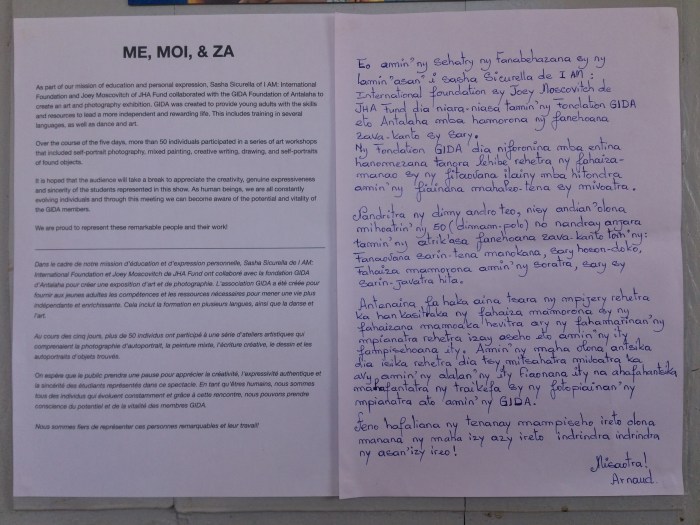 ME, MOI, & ZA
As part of our mission of education and personal expression, Sasha Sicurella of I AM: International
Foundation and Joey Moscovitch of JHA Fund collaborated with the GIDA Foundation of Antalaha to
create an art and photography exhibition. GIDA was created to provide young adults with the skills
and resources to lead a more independent and rewarding life. This includes training in several
languages, as well as dance and art.
Over the course of the five days, more than 50 individuals participated in a series of art workshops
that included self-portrait photography, mixed painting, creative writing, drawing, and self-portraits
of found objects.
It is hoped that the audience will take a break to appreciate the creativity, genuine expressiveness
and sincerity of the students represented in this show. As human beings, we are all constantly
evolving individuals and through this meeting we can become aware of the potential and vitality of
the GIDA members.
We are proud to represent these remarkable people and their work!
Dans le cadre de notre mission d'éducation et d'expression personnelle, Sasha Sicurella de I AM:
International Foundation et Joey Moskovitch de JHA Fund ont collaboré avec la fondation GIDA
d'Antalaha pour créer une exposition d'art et de photographie. L'association GIDA a été créée pour
fournir aux jeunes adultes les compétences et les ressources nécessaires pour mener une vie plus
indépendante et enrichissante. Cela inclut la formation en plusieurs langues, ainsi que la danse et
l'art.
Au cours des cinq jours, plus de 50 individus ont participé à une série d'ateliers artistiques qui
comprenaient la photographie d'autoportrait, la peinture mixte, l'écriture créative, le dessin et les
autoportraits d'objets trouvés.
On espère que le public prendra une pause pour apprécier la créativité, l'expressivité authentique et
la sincérité des étudiants représentés dans ce spectacle. En tant qu'êtres humains, nous sommes
tous des individus qui évoluent constamment et grâce à cette rencontre, nous pouvons prendre
conscience du potentiel et de la vitalité des membres GIDA.
Nous sommes fiers de représenter ces personnes remarquables et leur travail!
Eo amin'ny sehatry ny Fanabeazana sy ny
lamin'asan'i sasha Sicurella de I AM :
International foundation sy Joey Moscovitch de
JHA Fund dia niara-niasa tamin'ny Fondation GIDA
eto Antalaha mba hamorona ny fanehoana
zava-kanto sy sary.
Ny Fondation GIDA dia niforonina mba entina
hanomezana tanora lehibe rehetra ny fahaiza-
manao sy ny fitaovana ilainy mba hitondra
amin'ny fiainana mahaleo-tena sy mivoatra.
Nandritra ny dimy andro teo, nisy andian'olona
mihoatrin'ny 50 (dimam-polo) no nandray anjara
tamin'ny atrik'asa fanehoana zava-kanto toin'ny:
Fanaovana sarin-tena manokana, sary hoson-doko,
Fahaiza mamorona amin'ny soratra, sary sy
sarin-javatra hita.
Antenaina fa haka aina tsara ny mpijery rehetra
ka hankasitraka ny fahaiza mamorona sy ny
fahaizana mamoaka hevitra ary ny fahamarinan'ny
mpianatra rehetra izay aseho eto amin'ny ity
fampisehoana ity. Amin'ny maha olona antsika
dia isika rehetra dia tsy mitsahatra mivoatra ka
avy amin'ny alalan'ny ity fiaonana ity na ahafahantsika
mahafantatra ny traikefa sy ny fotopiainan'ny
mpianatra ato amin'ny GIDA.
Feno hafaliana ny tenanay mampiseho ireto olona
manana ny maha izy azy ireto indrindra indrindra
ny asan'izy ireo!
Misaotra!
Arnaud.